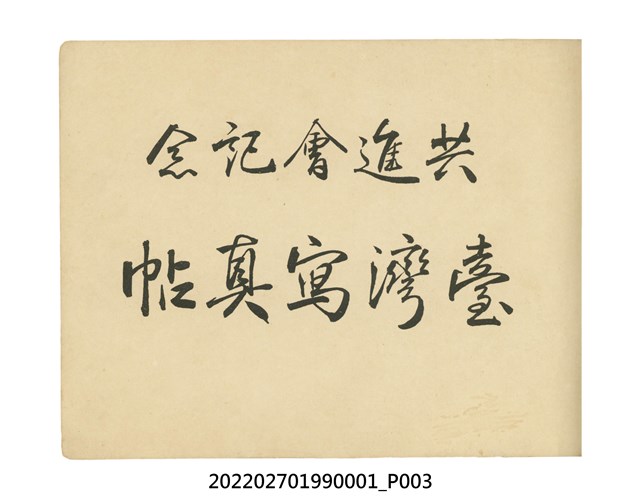 共進會記念
臺灣寫真帖
202202701990001_P003